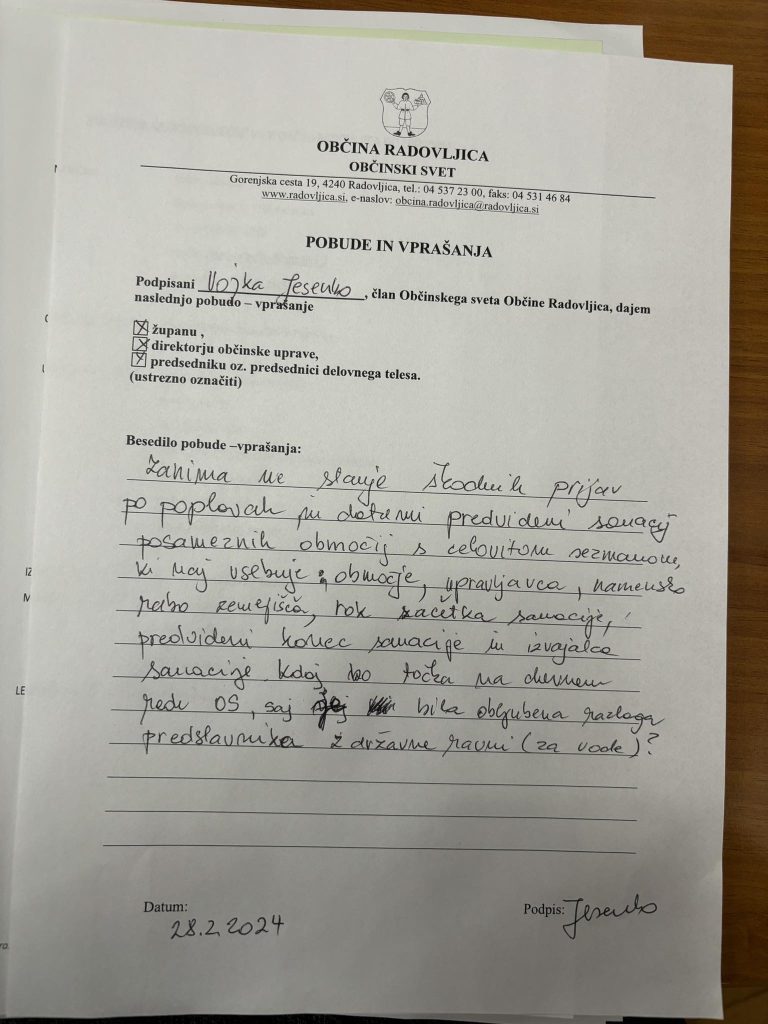 OBČINA RADOVLJICA
OBČINSKI SVET
Gorenjska cesta 19, 4240 Radovljica, tel.: 04 537 23 00, faks: 04 531 46 84
www.radovljica.si, e-naslov: obcina.radovljica@radovljica.si
POBUDE IN VPRAŠANJA
Podpisani Vojka Jesenko, član Občinskega sveta Občine Radovljica, dajem
naslednjo pobudo – vprašanje
☒ županu ,
☒ direktorju občinske uprave,
☒ predsedniku oz. predsednici delovnega telesa.
(ustrezno označiti)
Besedilo pobude –vprašanja:
Zanima me stanje škodnih prijav
po poplavah in datumi predvideni sanacij
posameznih območij s celovitom seznamom,
ki naj vsebuje: območje, upravljavca, namensko
rabo zemljišča, rok začetka sanacije,
predvideni konec sanacije in izvajalca
sanacije. Kdaj bo točka na dnevnem
redu OS, saj bila obljubena razlaga
predstavnika z državne ravni (za vode)?
Datum:
28.2.2024
Podpis: Jesenko